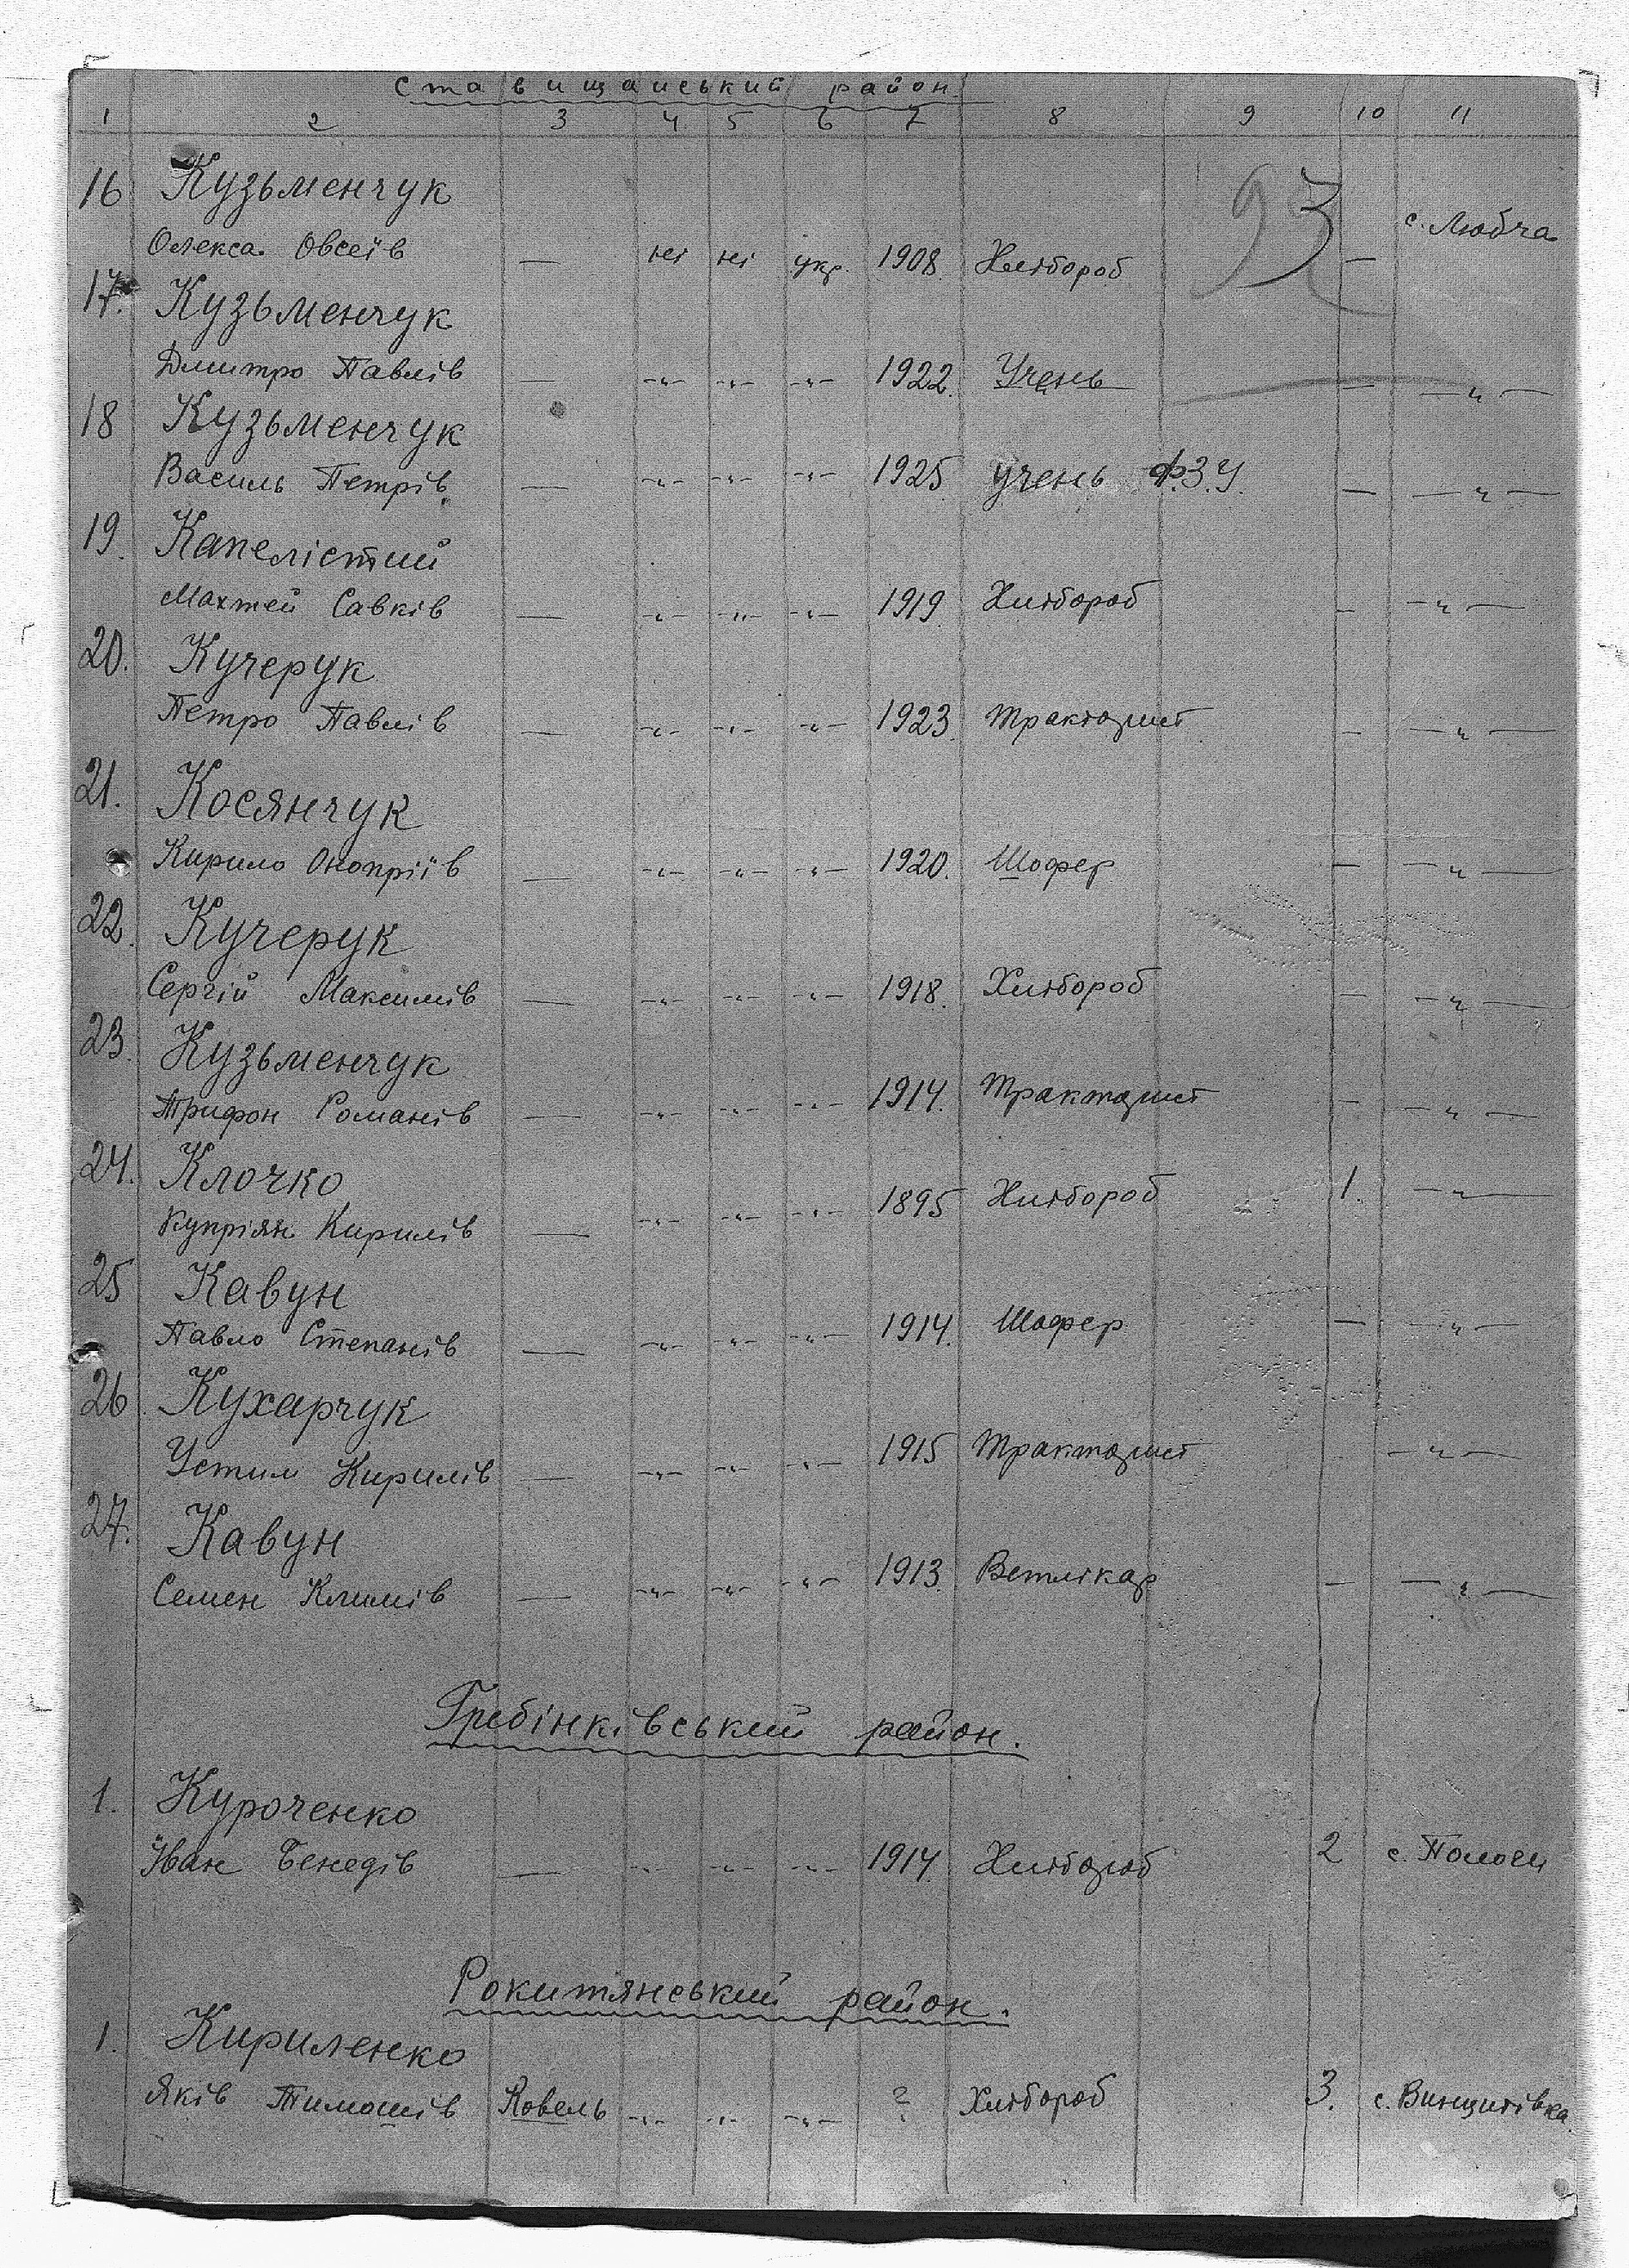 Ставищанський район.
1 2 3 4 5 6 7 8 9 10 11
93
16 Кузьменчук с. Любча
Олекса Овсеїв — ні ні укр. 1908 Хлібороб —
17. Кузьменчук
Дмитро Павлів — -„- -„- -„- 1922. Учень — —„—
18 Кузьменчук
Василь Петрів — -„- -„- -„- 1925 учень Ф.З.У. — —„—
19. Капелістий
Махтей Савків — -„- -„- -„- 1919 Хлібороб — —„—
20. Кучерук
Петро Павлів — -„- -„- -„- 1923. Тракторист — —„—
21. Косянчук
Кирило Онопріїв — -„- -„- -„- 1920. Шофер — —„—
22. Кучерук
Сергій Максимів — -„- -„- -„- 1918. Хлібороб — —„—
23. Кузьменчук
Трифон Романів — -„- -„- -„- 1914. Тракторист — —„—
24. Клочко
Купріян Кирилів — -„- -„- -„- 1895 Хлібороб 1. —„—
25 Кавун
Павло Степанів — -„- -„- -„- 1914. Шофер — —„—
26 Кухарчук
Устим Кирилів — -„- -„- -„- 1915 Тракторист —„—
27. Кавун
Семен Климів — -„- -„- -„- 1913. Ветлікар — —„—
Гребінківський район.
1. Куроченко
Іван Бенедів — -„- -„- -„- 1914. Хлібороб 2 с. Пологи
Рокитянський район.
1. Кириленко
Яків Тимошів Ковель -„- -„- -„- ? Хлібороб 3. с. Винцитівка